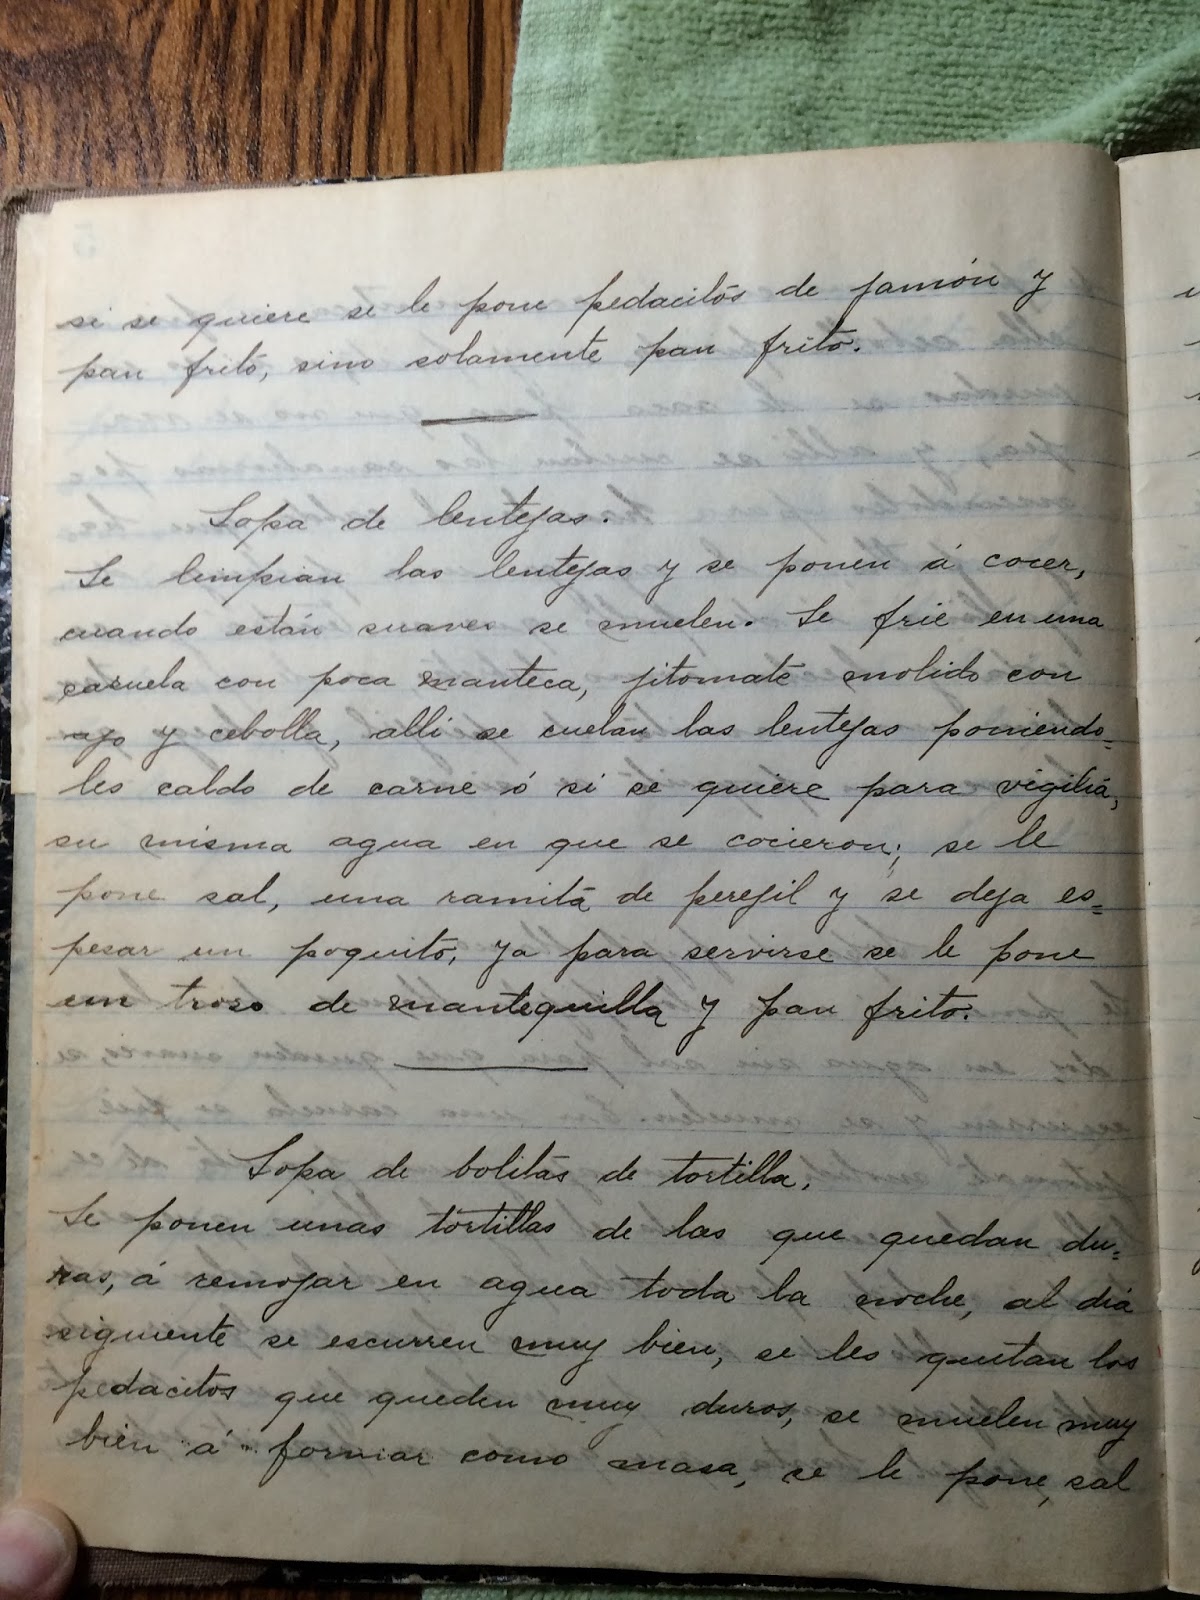 si se quiere se le pone pedacitos de jamón y
pan frito, sino solamente pan frito.
Sopa de lentejas.
Se limpian las lentejas y se ponen á cocer,
cuando están suaves se muelen. Se frie en una
casuela con poca manteca, jitomate molido con
ajo y cebolla, alli se cuelan las lentejas poniendo=
les caldo de carne ó si se quiere para vigilia,
su misma agua en que se cocieron; se le
pone sal, una ramita de perejil y se deja es=
pesar un poquito, ya para servirse se le pone
un troso de mantequilla y pan frito.
Sopa de bolitas de tortilla.
Se ponen unas tortillas de las que quedan du=
ras, á remojar en agua toda la noche, al dia
siguiente se escurren muy bien, se les quitan los
pedacitos que queden muy duros, se muelen muy
bien á formar como masa, se le pone, sal